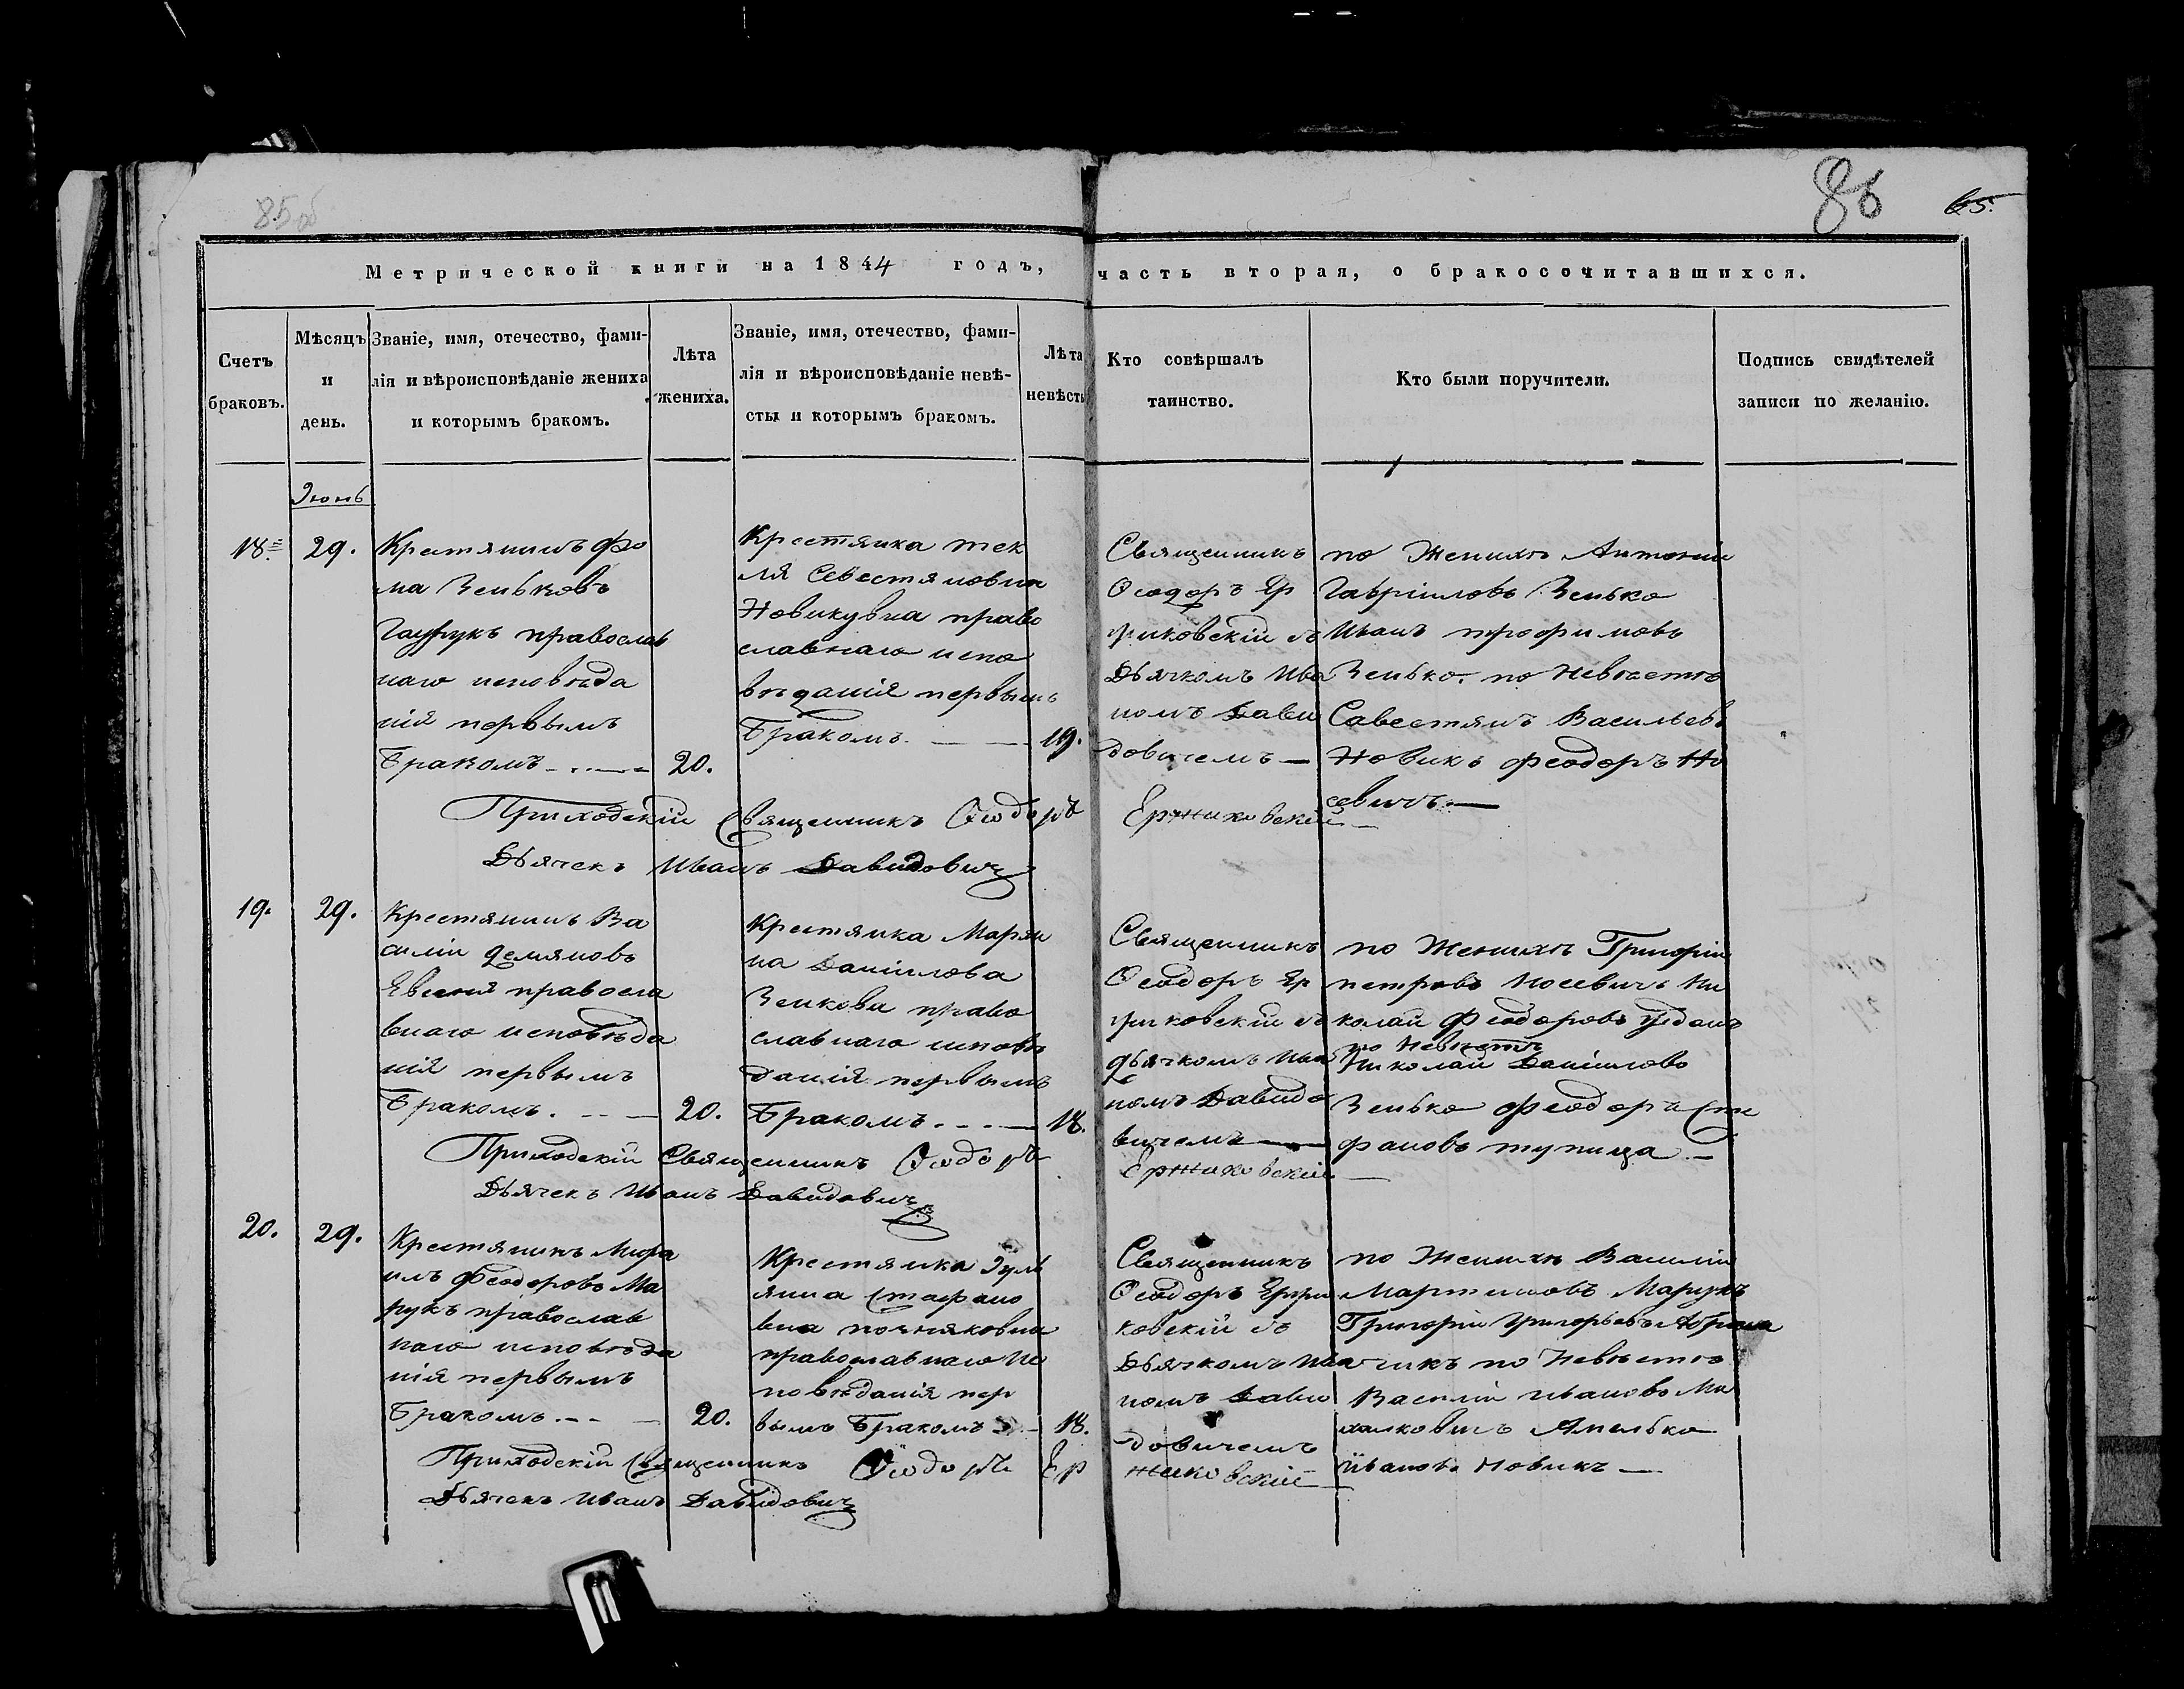 85об
86
65.
Метрической книги на 1844 годъ, часть вторая, о бракосочитавшихся.
Счетъ браковъ.
Мѣсяцъ и день.
Званіе, имя, отечество, фами-
лія и вѣроисповѣданіе жениха
и которымъ бракомъ.
Лѣта жениха.
Званіе, имя, отечество, фами-
лія и вѣроисповѣданіе невѣ-
сты и которымъ бракомъ.
Лѣта невѣсты
Кто совѣршалъ
таинство.
Кто были поручители.
Подпись свидѣтелей
записи по желанію.
Июнь
18.
29.
Крестянинъ Фо
ма Зеньковъ
православ
наго исповѣда
нія первымъ
Бракомъ
20.
Крестянка тек
ля Севестяновна
Новикувна право
славнаго испо
вѣданія первымъ
Бракомъ
19.
Священникъ
Ѳеодоръ Ер
жиковскій съ
Дьячкомъ Ива
номъ Дави
довичемъ
по Женихѣ Антоній
Гавріиловъ Зенько
Иванъ трофимовъ
Зенько. по Невѣстѣ
Савестянъ Васильевъ
Новикъ Феодоръ Но
севичъ.
Приходскій Священникъ Ѳеодоръ Ержиковскій
Дьячекъ Иванъ Давидовичъ
19.
29.
Крестянинъ Ва
силій Демяновъ
правосла
внаго исповѣда
нія первымъ
Бракомъ.
20.
Крестянка Марян
на Даніилова
Зенкова право
славнаго исповѣ
данія первымъ
Бракомъ
18.
Священникъ
Ѳеодоръ Ер
жиковскій съ
дьячкомъ Ива
номъ Давидо
вичемъ
по Женихѣ Григорій
петровъ Носевичъ Ни
колай Феодоровъ
по Невѣстѣ
Николай Даніиловъ
Зенько Феодоръ Сте
фановъ тупица
Приходскій Священникъ Ѳеодоръ Ержиковскій
Дьячекъ Иванъ Давидовичъ
20.
29.
Крестянинъ Миха
илъ Феодоровъ Ма
рукъ православ
наго исповѣда
нія первымъ
Бракомъ
20.
Крестянка Іуль
янна Стефано
вна
православнаго Ис
повѣданія пер
вымъ Бракомъ
18.
Священникъ
Ѳеодоръ Ержи
ковскій съ
Дьячкомъ Ива
номъ Дави
довичемъ
по Женихѣ Василій
Мартиновъ Марукъ
Григорій Григорьевъ
по Невѣстѣ
Василій Ивановъ Ми
халковичъ Амелько
Ивановъ Новикъ
Приходскій Священникъ Ѳеодоръ Ержиковскій
Дьячекъ Иванъ Давидовичъ